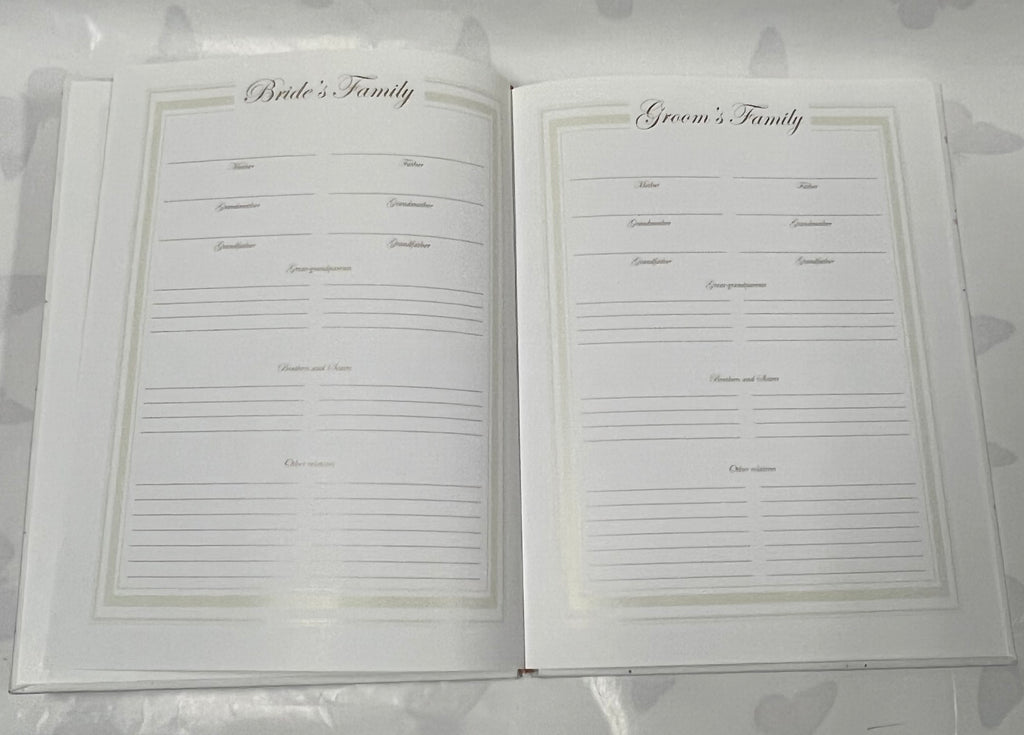 Bride's Family
Mother Father
Grandmother Grandmother
Grandfather Grandfather
Great-grandparents
Brothers and Sisters
Other relatives
Groom's Family
Mother Father
Grandmother Grandmother
Grandfather Grandfather
Great-grandparents
Brothers and Sisters
Other relatives